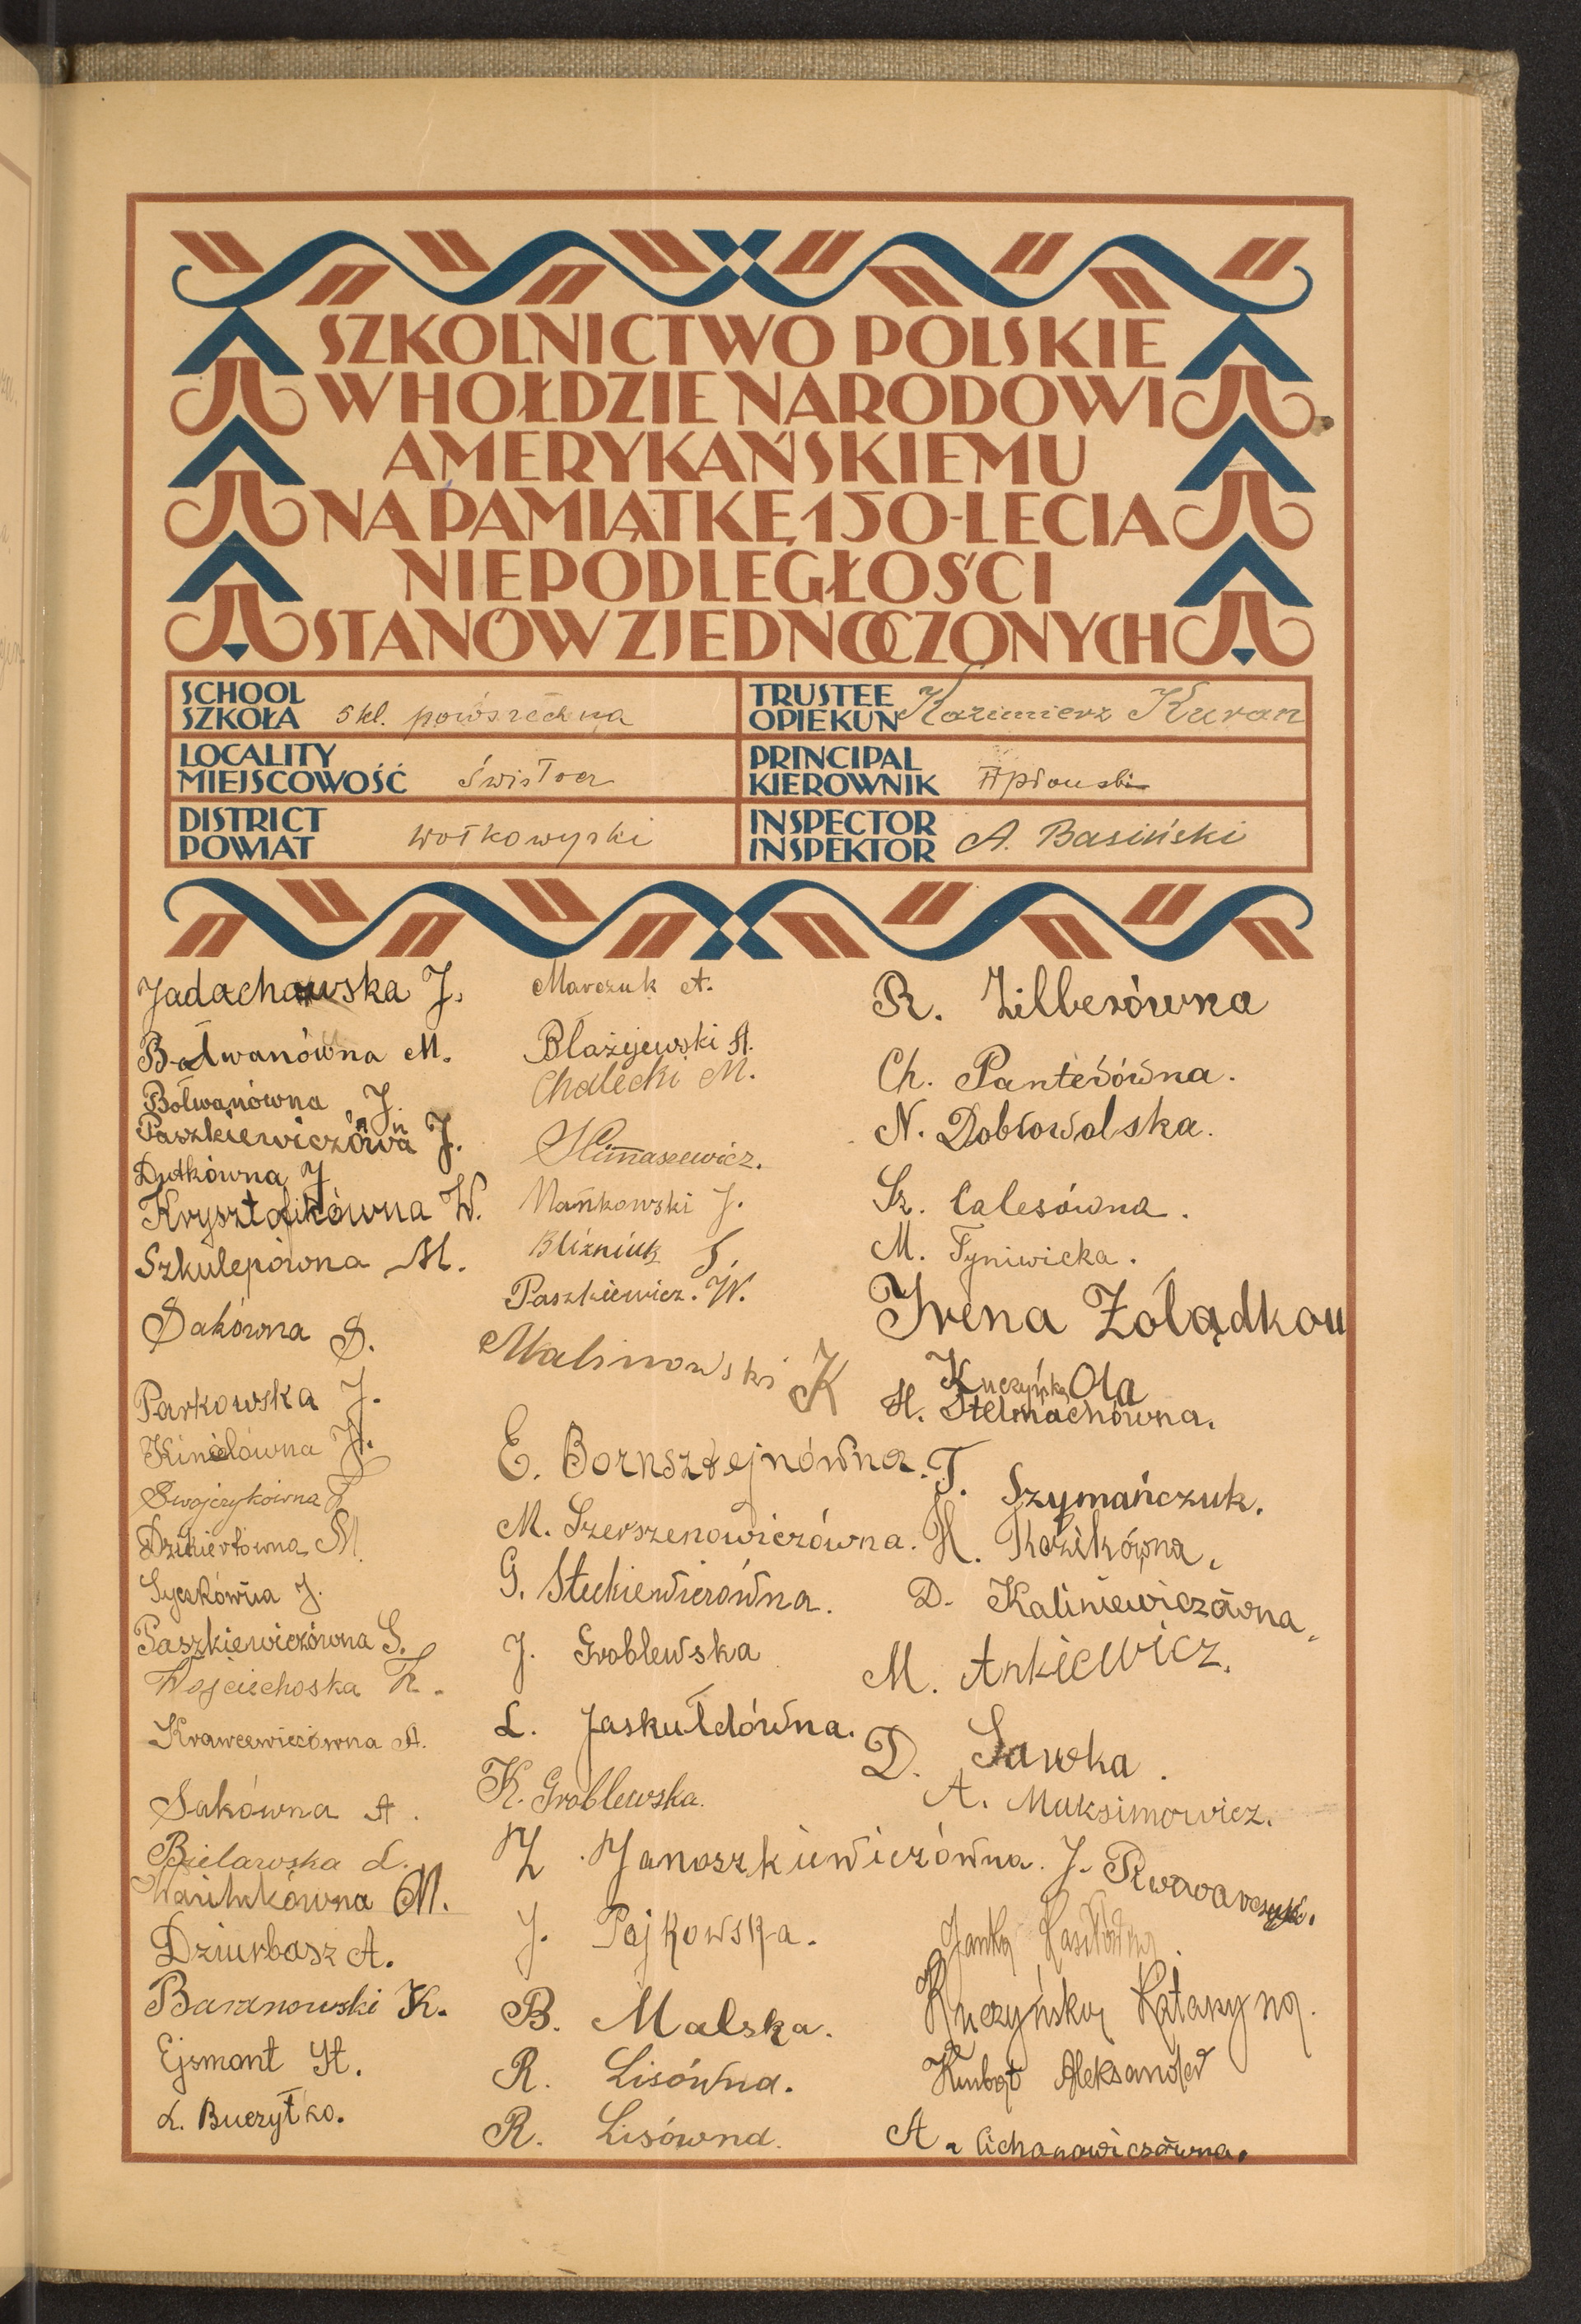 SZKOLNICTWO POLSKIE
W HOŁDZIE NARODOWI
AMERYKAŃSKIEMU
NA PAMIĄTKĘ 150-LECIA
NIEPODLEGŁOŚCI
STANÓW ZJEDNOCZONYCH
SCHOOL
SZKOŁA 5 kl. powszechna
TRUSTEE
OPIEKUN Kazimierz Kuran
LOCALITY
MIEJSCOWOŚĆ Świsłocz
PRINCIPAL
KIEROWNIK
DISTRICT
POWIAT wołkowyski
INSPECTOR
INSPEKTOR A. Basiński
Jadachowska J.
Bałwanówna M.
Bołwanówna J.
Paszkiewiczówna J.
Dutkówna J
Krysztofikówna W.
Szkulepówna M.
Sakówna S.
Parkowska J.
Kinielówna J.
Swojczykówna J
Dzikiertówna M.
Syczkówna J.
Paszkiewiczówna S.
Wojciechoska K.
Krawcewiczówna A.
Sakówna A.
Bielawska L.
M.
Dziurbasz A.
Baranowski K.
Ejsmont St.
L. Buczyłko.
Marczuk A.
Błażejewski A.
Chalecki M.
Mańkowski J.
Bliźniuk S.
Paszkiewicz. W.
Malinowski K
E. Bornsztejnówna.
M. Szerszenowiczówna.
G. Steckiewiczówna.
J. Groblewska
L. Jaskułdówna.
K. Groblewska.
Z. Janoszkiewiczówna.
J. Pajkowska.
B. Malska.
R. Lisówna.
R. Lisówna.
R. Zilberówna
Ch. Panterówna.
N. Dobrowolska.
Sz. Calesówna.
M. Tyniwicka.
Irena Żólądkow
Kuczyńska Ola
H. Stelmachówna.
T. Szymańczuk.
H. Kozikówna.
D. Kaliniewiczówna.
M. Ankiewicz.
D. Sawka.
A. Muksimowicz.
J.
Janka
Kuczyńska Katarzyna.
Kubat Aleksander
A. Cichanowiczówna.